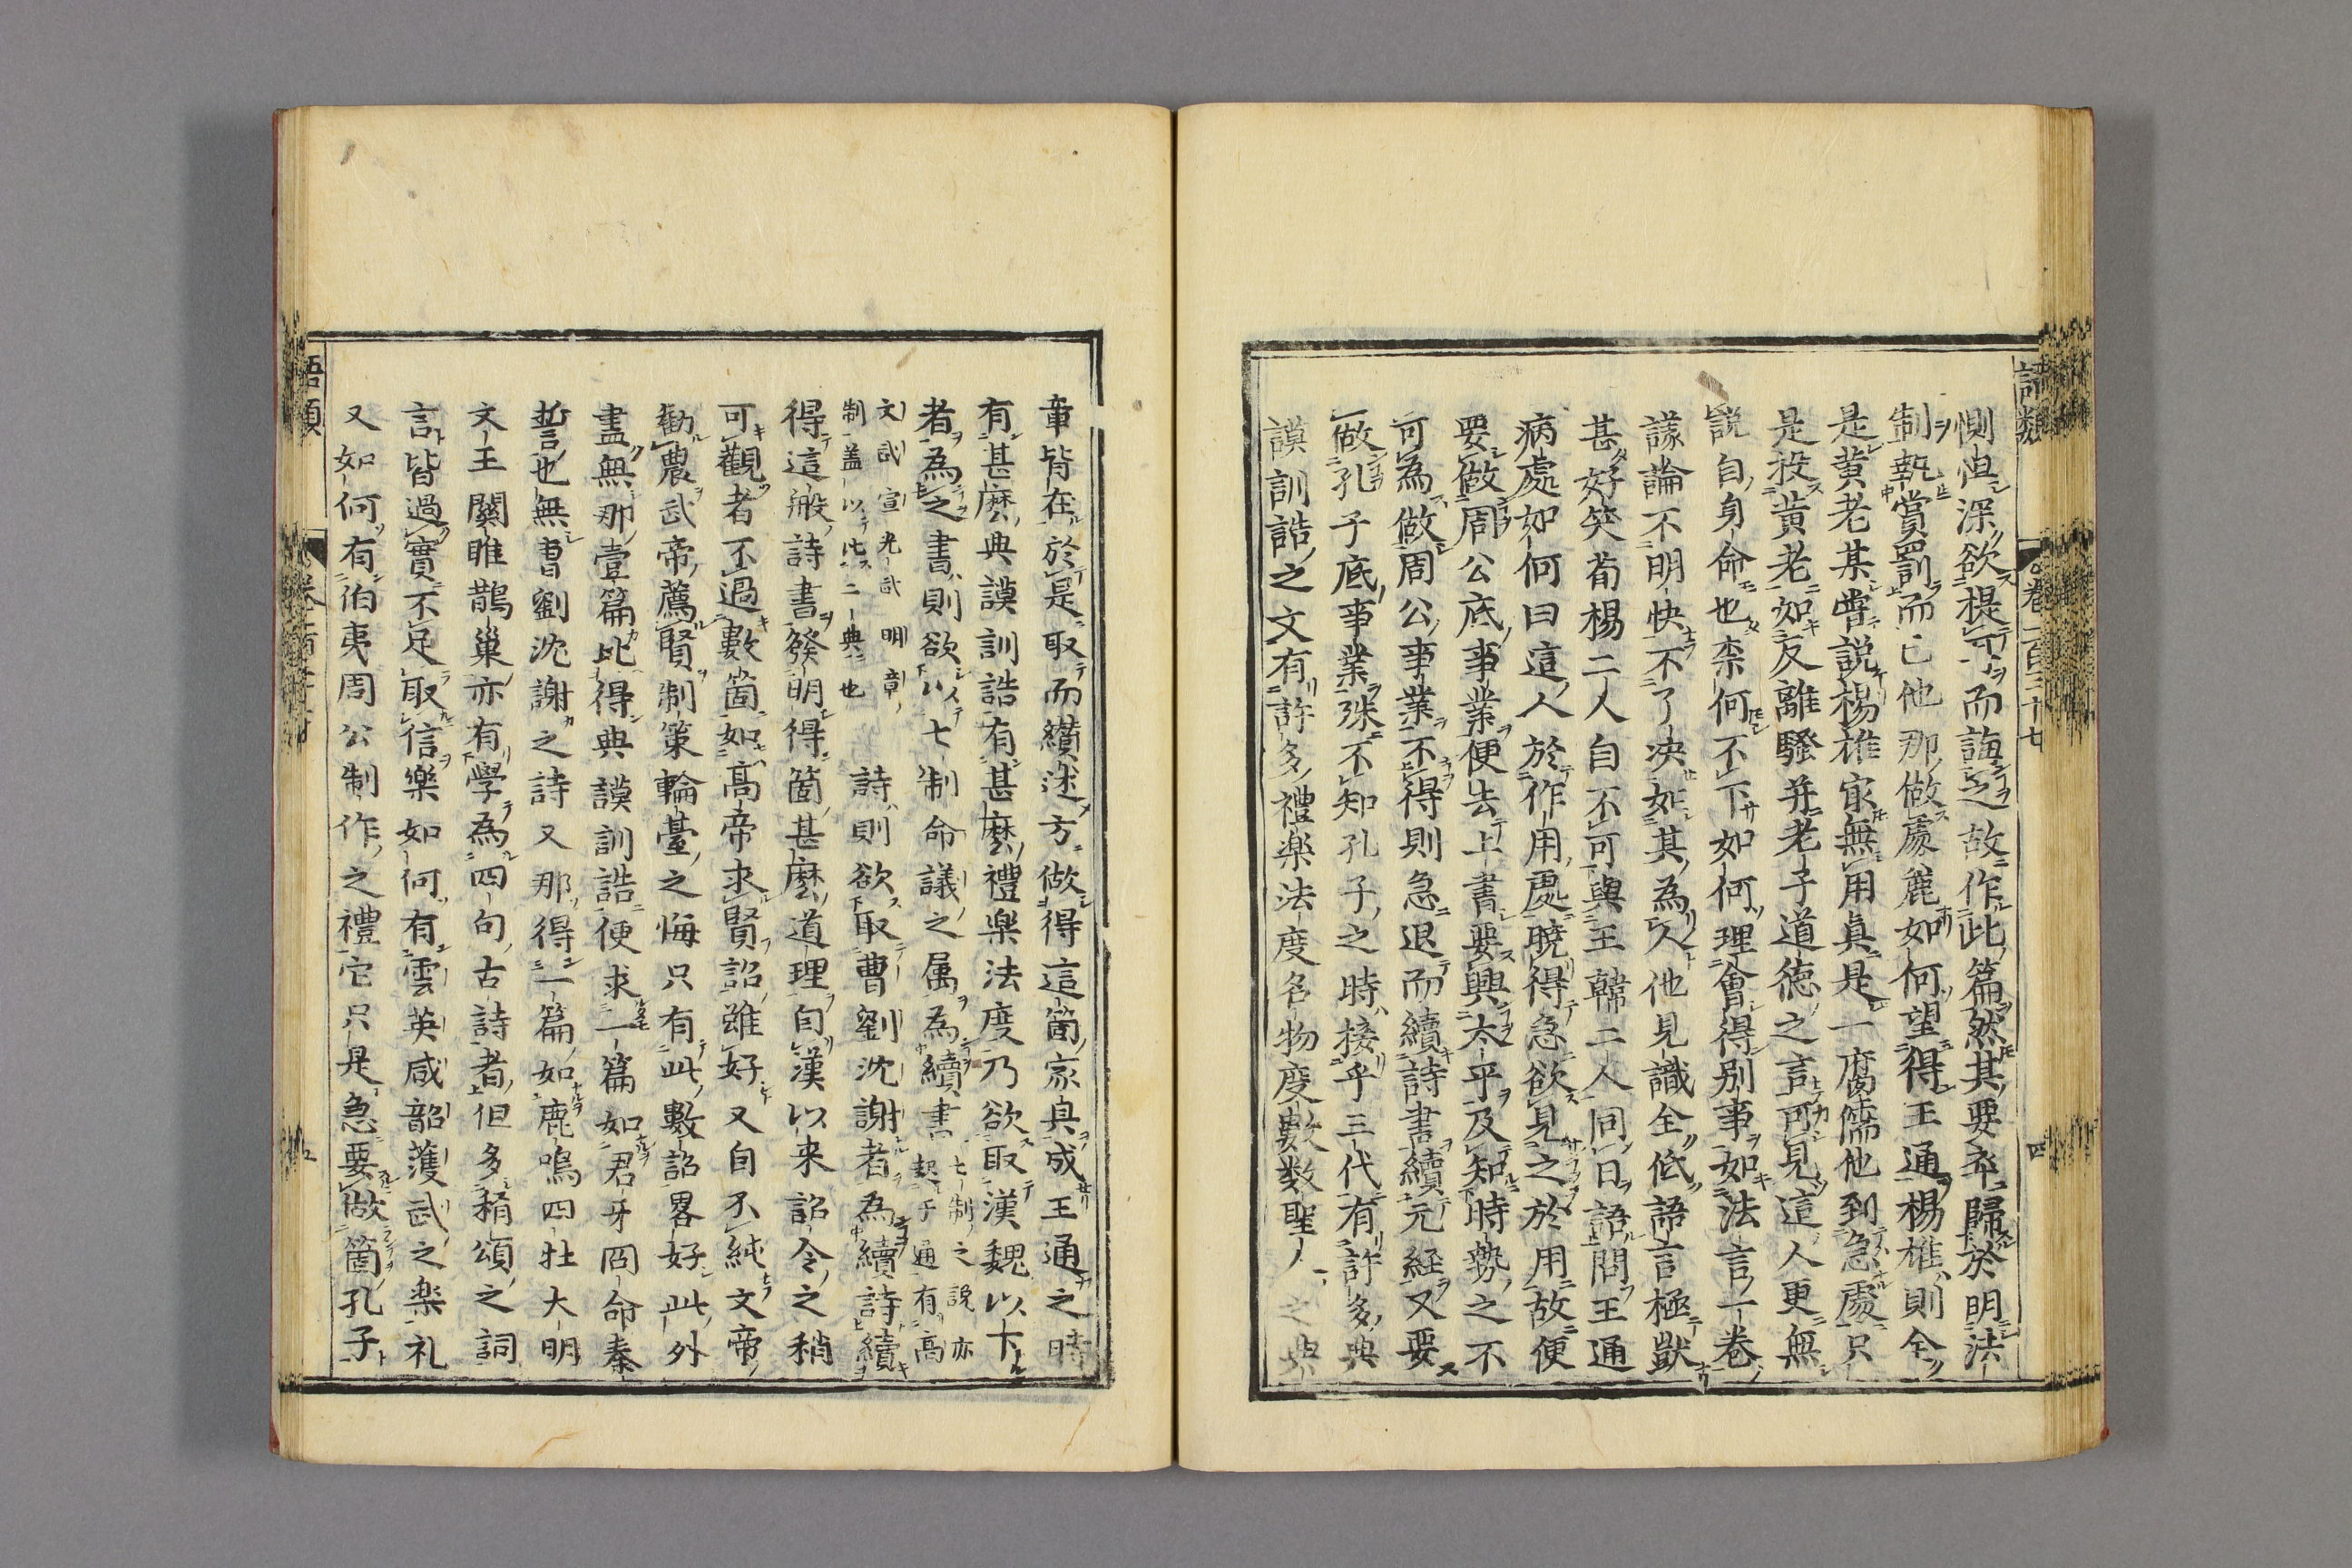 語類 卷一百三十七 四
惻怛深欲提耳而誨之故作此篇然其要卒歸於明法
制執賞罰而已他那做處麄如何望得王通楊雄則全
是黄老某嘗說楊雄㝡無用真是一腐儒他到急處只
是投黄老如反離騷并老子道德之言可見這人更無
說自身命也柰何不下如何理會得别事如法言一卷
議論不明快不了决如其為人他見識全低語言極獃
甚好笑荀楊二人自不可與王韓二人同日語問王通
病處如何曰這人於作用處曉得急欲見之於用故便
要做周公底事業便去上書要興太平及知時勢之不
可為做周公事業不得則急退而續詩書續元経又要
做孔子底事業殊不知孔子之時接乎三代有許多典
謨訓誥之文有許多禮楽法度名物度數数聖人之典
章皆在於是取而纉述方做得這箇家具成王通之時
有甚麽典謨訓誥有甚麽禮楽法度乃欲取漢魏以下
者為之書則欲以七制命議之属為續書七制之說亦起于通有高
文武宣光武明章制盖以比二典也詩則欲取曹劉沈謝者為續詩續
得這般詩書發明得箇甚麽道理自漢以来詔令之稍
可觀者不過數箇如高帝求賢詔雖好又自不純文帝
勸農武帝薦賢制策輪臺之悔只有此數詔畧好此外
盡無那壹篇比得典謨訓誥便求一篇如君牙冏命秦
誓也無曹劉沈謝之詩又那得一篇如鹿鳴四牡大明
文王關睢鵲巢亦有學為四句古詩者但多稱頌之詞
言皆過實不足取信樂如何有雲英咸韶濩武之楽礼
又如何有伯夷周公制作之禮它只是急要做箇孔子
語類